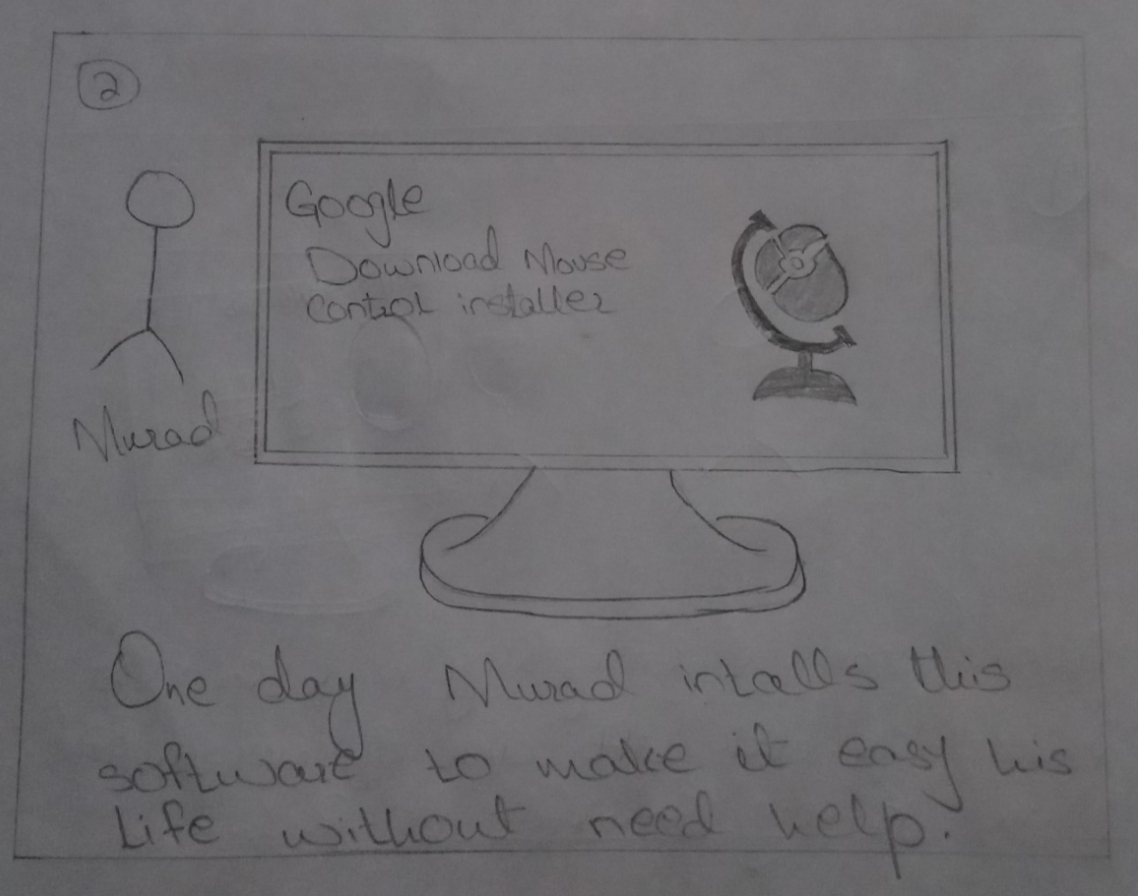 2
Google
Download Mouse
Control installer
Murad
One day Murad intalls this
software to make it easy his
Life without need help.